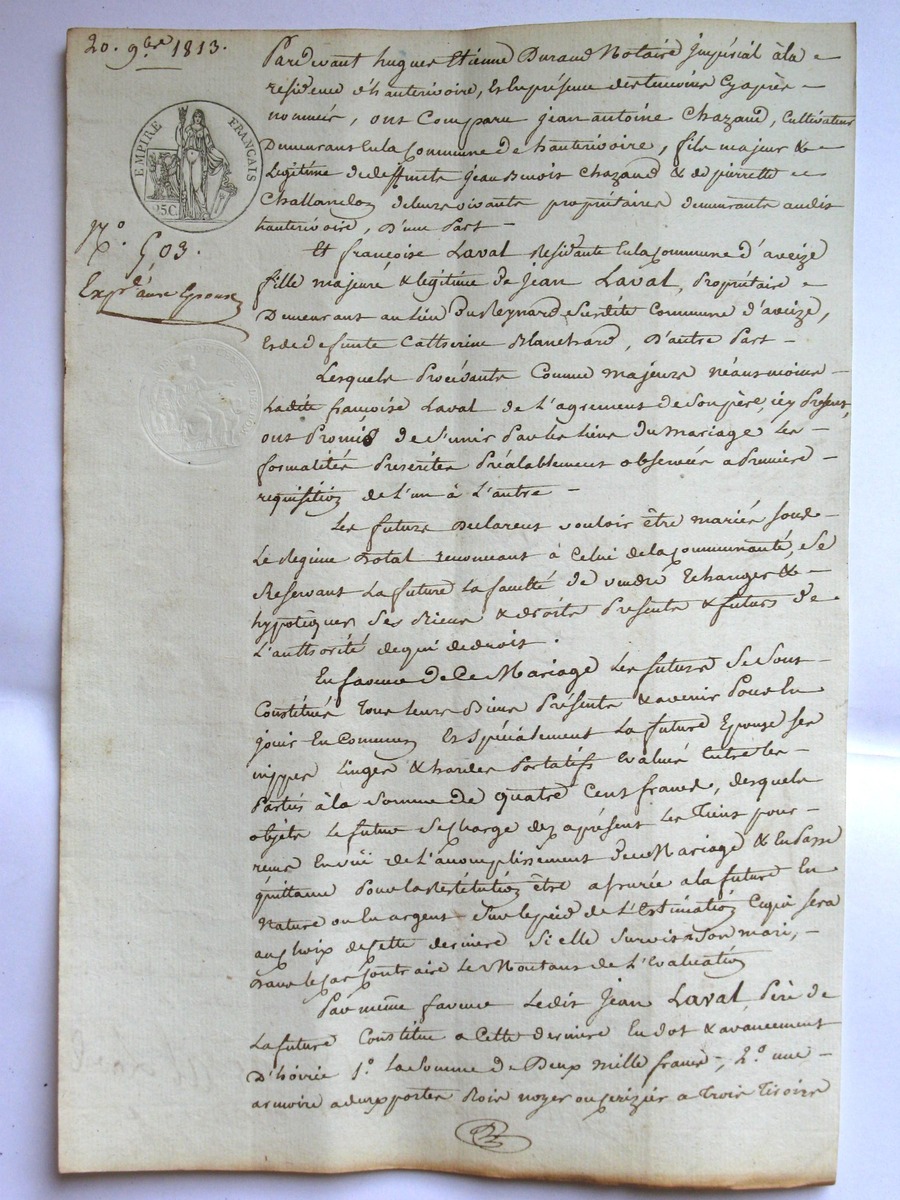 20. 9bre 1813.
EMPIRE FRANÇAIS
25C.
No. 503.
Expéd. à une Epouse
Pardevant hugues Etienne Durand Notaire Impérial à la
residence d'hauterivoire, et En présence des temoins Cyaprès
nommés, ont Comparu jean antoine Chazaud, Cultivateur
Demeurant En la Commune de hauterivoire, fils majeur &
Legitime de deffunts jean Benoit Chazaud & de pierrette
Challandon de leurs vivants propriétaires demeurants audit
hauterivoire, D'une Part
Et françoise Laval Residante En la Commune d'aveize
fille majeure & legitime de Jean Laval, Propriétaire
Demeurant au lieu Du Reynard Surdite Commune d'aveize,
Et de defunte Catherine Blanchard, D'autre Part
Lesquels Procédants Comme majeurs néansmoins
Ladite françoise Laval de L'agrement de Son père, icy Présent,
ont Promis de S'unir Par les liens Du mariage Les
formalités Prescrites Préalablement observées a Premiere
requisition de L'un à L'autre
Les futurs Declarent vouloir être mariés Sous
Le Regime Dotal renonceant à Celui de la Communauté, Se
Reservant La future La faculté de vendre Echanger &
hypotéquer Ses Biens & droits Présents & futurs De
L'authorité de qui de droit.
En faveur De Ce Mariage Les futurs Se Sont
Constitués Tous leurs Biens Présents & avenir Pour En
jouir En Commun Et Spécialement La future Epouse Ses
nippes Linges & hardes Portatifs Evalués Entre les
Parties à la Somme De quatre Cent francs, desquels
objets Le futur Se Charge dez aprésent Les Tiens pour
reçus En vüe de L'accomplissement De ce Mariage & En Passe
quittance Pour la Restitution être assurée a la future En
Nature ou En argent Sur le pied de L'Estimation Ce qui Sera
au Choix de Cette derniere Si elle Survit a Son mari,
Dans le Cas Contraire Le Montant de L'évaluation
Par même faveur Ledit Jean Laval Père de
La future Constitue a Cette derniere En dot & avancement
D'hoirie 1.º La Somme de Deux mille francs, 2.º une
armoire a deux portes Bois noyer ou Cerizier a Trois Tiroirs